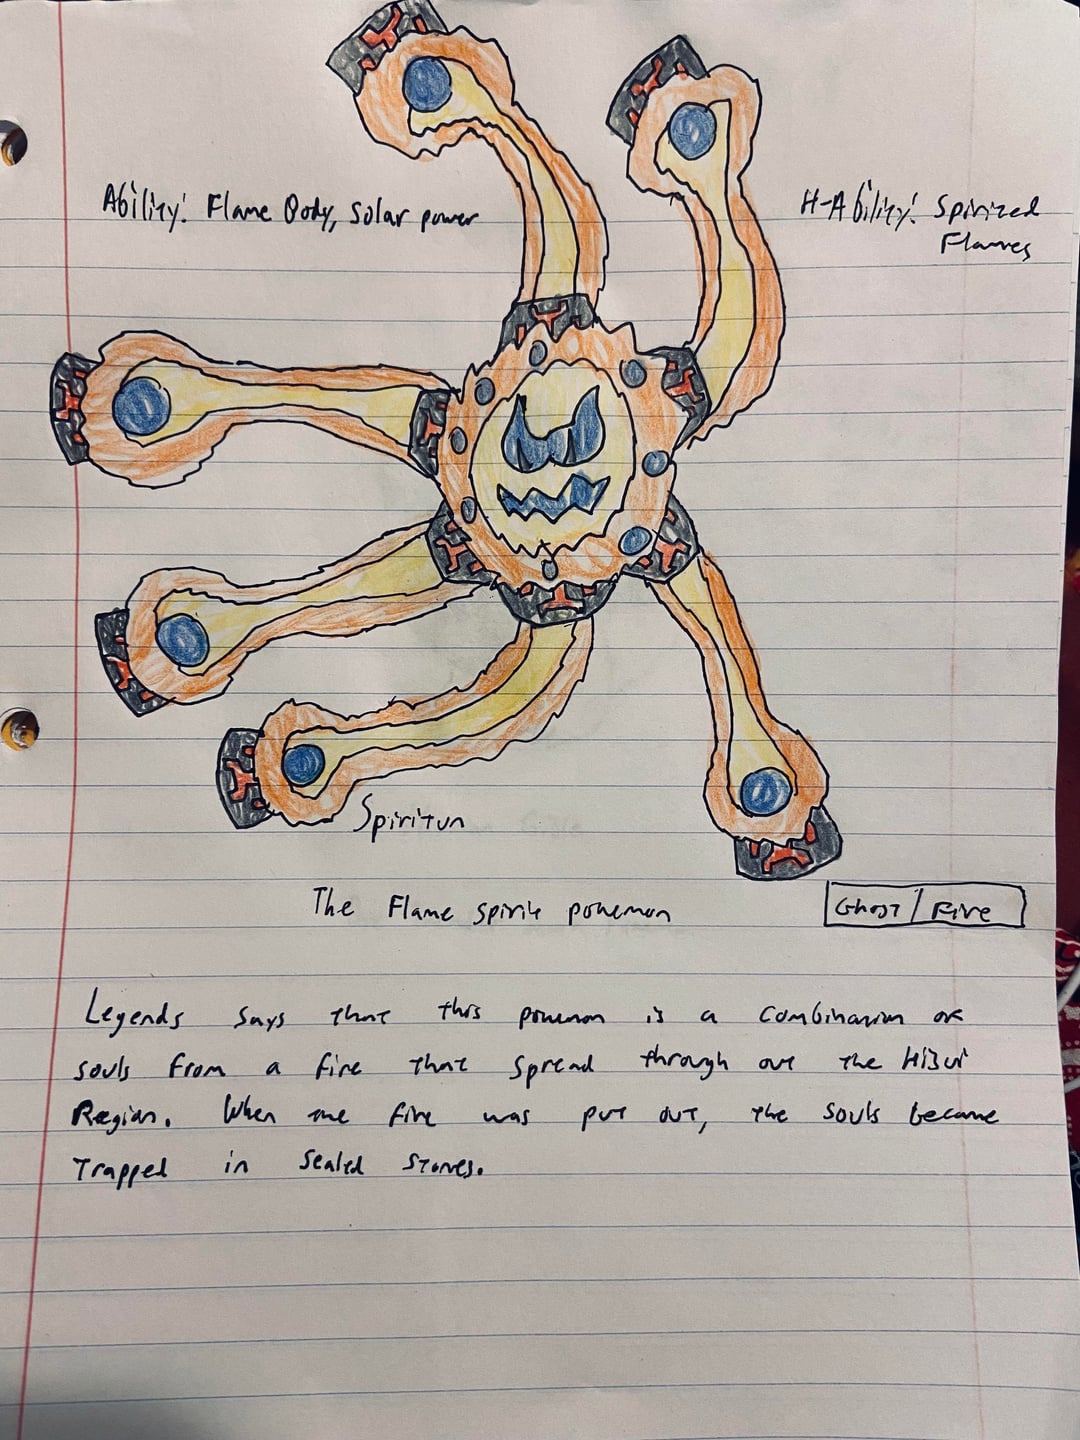 Ability: Flame Body, Solar power
H-Ability: Spirized
Flames
Spiritun
The Flame spirit pokemon
Ghost / Fire
Legends says that this pokemon is a combination of
souls from a fire that spread through out the Hisui
Region. When the fire was put out, the souls became
trapped in sealed stones.